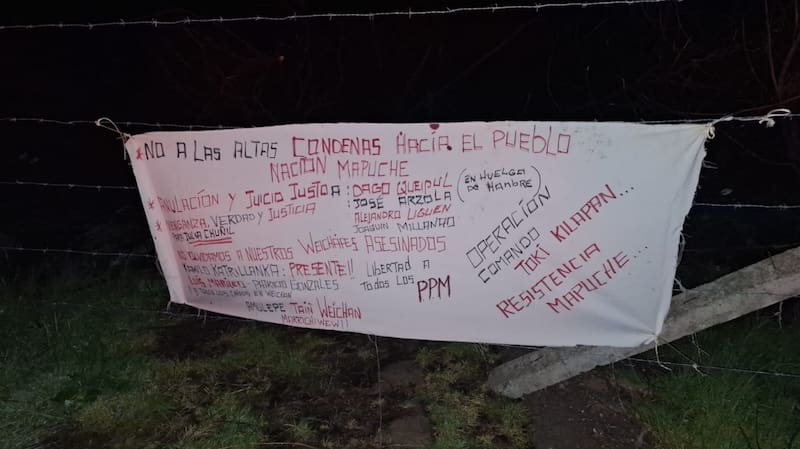 *NO A LAS ALTAS CONDENAS HACÍA EL PUEBLO
NACIÓN MAPUCHE
* ANULACIÓN Y JUICIO JUSTO A : DAGO QUEIPUL (EN HUELGA DE HAMBRE)
JOSÉ ARZOLA
* VENGANZA, VERDAD Y JUSTICIA
PARA JULIA CHUÑIL
ALEJANDRO LIGUEN
JOAQUIN MILLANAO
NO OLVIDAMOS A NUESTROS WEICHAFES ASESINADOS
KAMILO KATRILLANKA : PRESENTE!!
LUIS MARILEO - PATRICIO GONZALES
Y TODOS LOS CAIDOS EN WEICHAN
LIBERTAD A
TODOS LOS PPM
AMULEPE TAIÑ WEICHAN
MARRICHIWEW!!
OPERACIÓN
COMANDO
TOKI KILAPAN...
RESISTENCIA
MAPUCHE...